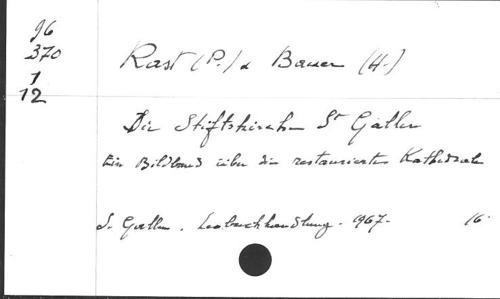 96
370
1
12
Rast (P.) & Bauer (H.)
Die Stiftskirche St Gallen
Ein Bildband über die restaurierte Kathedrale
St. Gallen. Leobuchhandlung. 1967. 16.